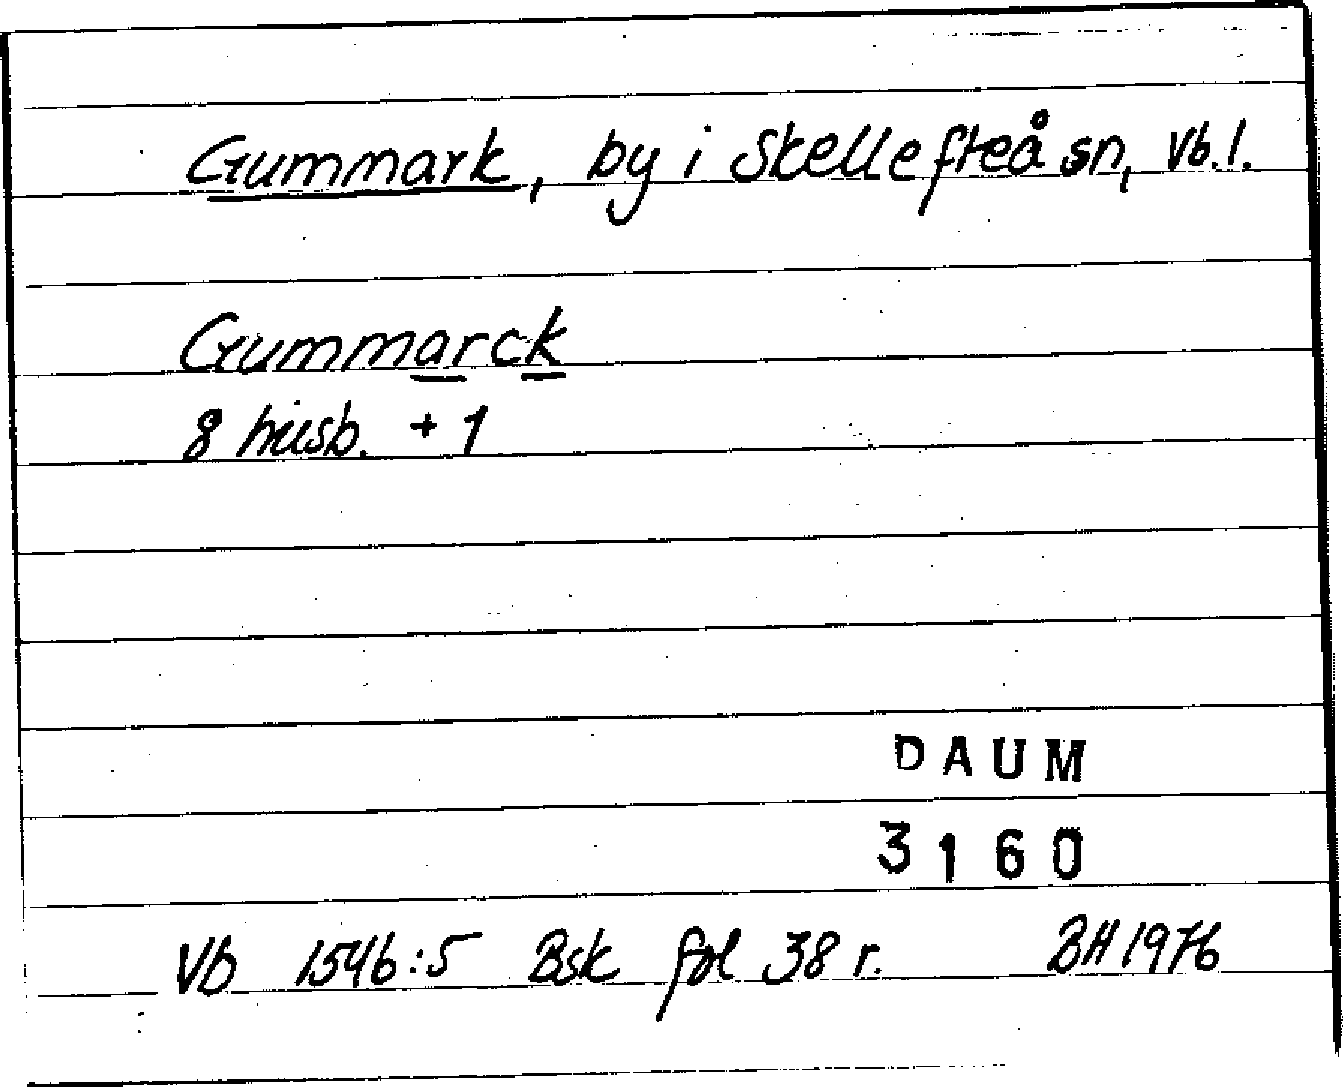 Gummark, by i Skellefteå sn, Vb.l.
Gummarck
8 husb. + 1
DAUM
3160
Vb 1546:5 Bsk fol 38 r. BH 1976